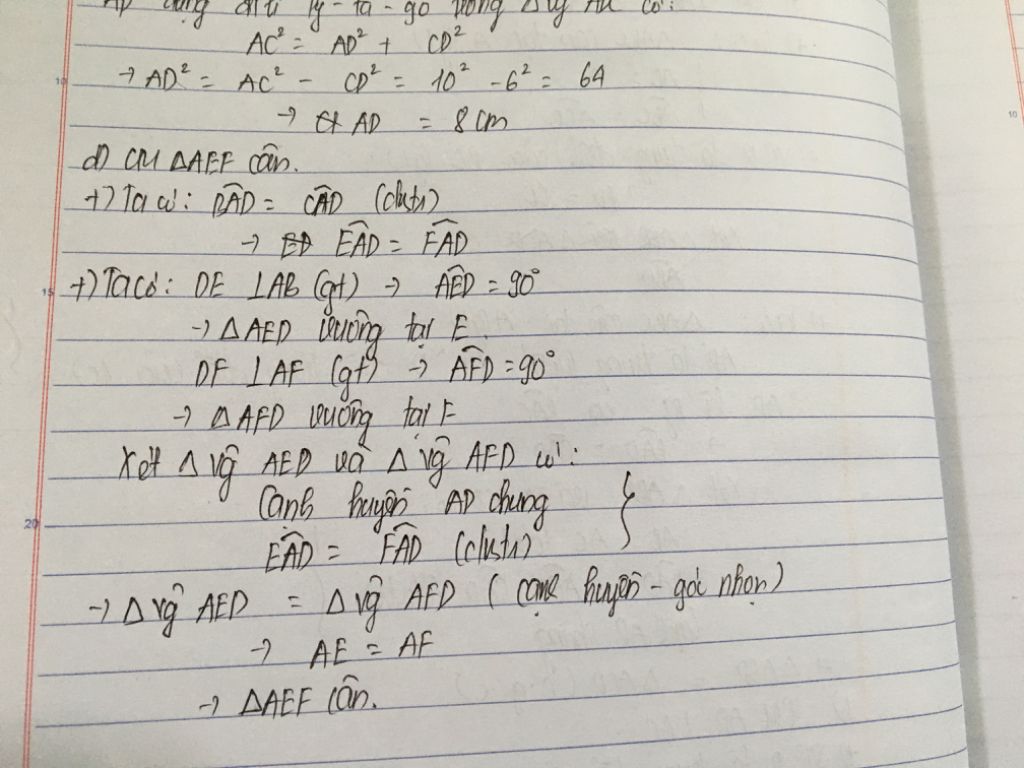 AD dụng đlí Py-ta-go trong Δvg ADC có:
AC² = AD² + CD²
10
→ AD² = AC² - CD² = 10² - 6² = 64
→ AD = 8cm
10
d) CM ΔAEF cân.
+) Ta có: BAD = CAD (cmtr)
→ EAD = FAD
15 +) Ta có: DE ⊥AB (gt) → AED = 90°
→ ΔAED vuông tại E.
DF ⊥AF (gt) → AFD = 90°
→ ΔAFD vuông tại F
Xét Δ vg AED và Δ vg AFD có:
Cạnh huyền AD chung }
20
EAD = FAD (cmtr)
→ Δ vg AED = Δ vg AFD (cạnh huyền - góc nhọn)
→ AE = AF
→ ΔAEF cân.